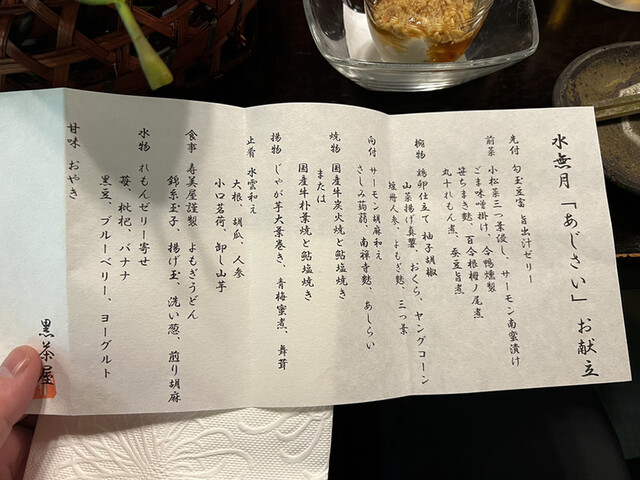 水無月「あじさい」お献立
先付 勾玉豆富 旨出汁ゼリー
前菜 小松菜三つ葉浸し、サーモン南蛮漬け
ごま味噌掛け、合鴨燻製
笹ちまき麩、百合根梅ノ尾煮
丸十れもん煮、蚕豆旨煮
椀物 鶏卵仕立て 柚子胡椒
山菜揚げ真薯、おくら、ヤングコーン
短冊人参、よもぎ麩、三つ葉
向付 サーモン胡麻和え
さしみ蒟蒻、南禅寺麩、あしらい
焼物 国産牛炭火焼と鮎塩焼き
または
国産牛朴葉焼と鮎塩焼き
揚物 じゃが芋大葉巻き、青梅蜜煮、舞茸
止肴 水雲和え
大根、胡瓜、人参
小口茗荷、卸し山芋
食事 寿美屋謹製 よもぎうどん
錦糸玉子、揚げ玉、洗い葱、煎り胡麻
水物 れもんゼリー寄せ
苺、枇杷、バナナ
黒豆、ブルーベリー、ヨーグルト
甘味 おやき
黒茶屋